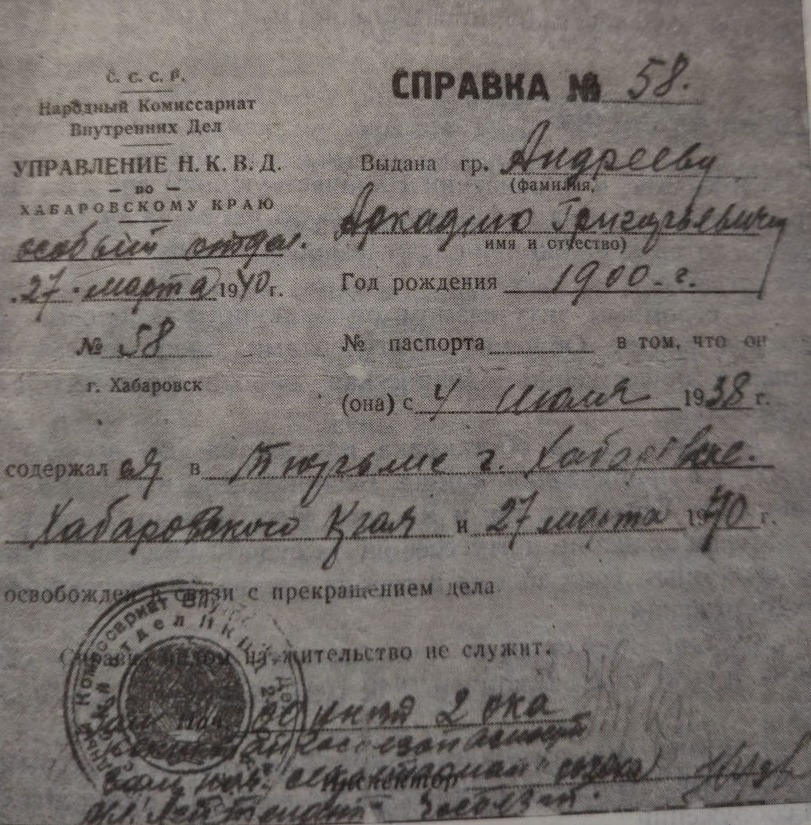 С. С. С. Р.
Народный Комиссариат
Внутренних Дел
УПРАВЛЕНИЕ Н. К. В. Д.
— по —
ХАБАРОВСКОМУ КРАЮ
особый отдел.
27 марта 1940 г.
№ 58
г. Хабаровск
СПРАВКА № 58.
Выдана гр. Андрееву
(фамилия,
Аркадию Григорьевичу
имя и отчество)
Год рождения 1900 - г.
№ паспорта в том, что он
(она) с 4 Июля 1938 г.
содержался в Тюрьме г. Хабаровске.
Хабаровского Края и 27 марта 1940 г.
освобожден в связи с прекращением дела
Справка видом на жительство не служит.
Зам нач. 2 ока
госбезопасност
Зам. нач.
Инспектор
мл. Лейтенант госбезоп.